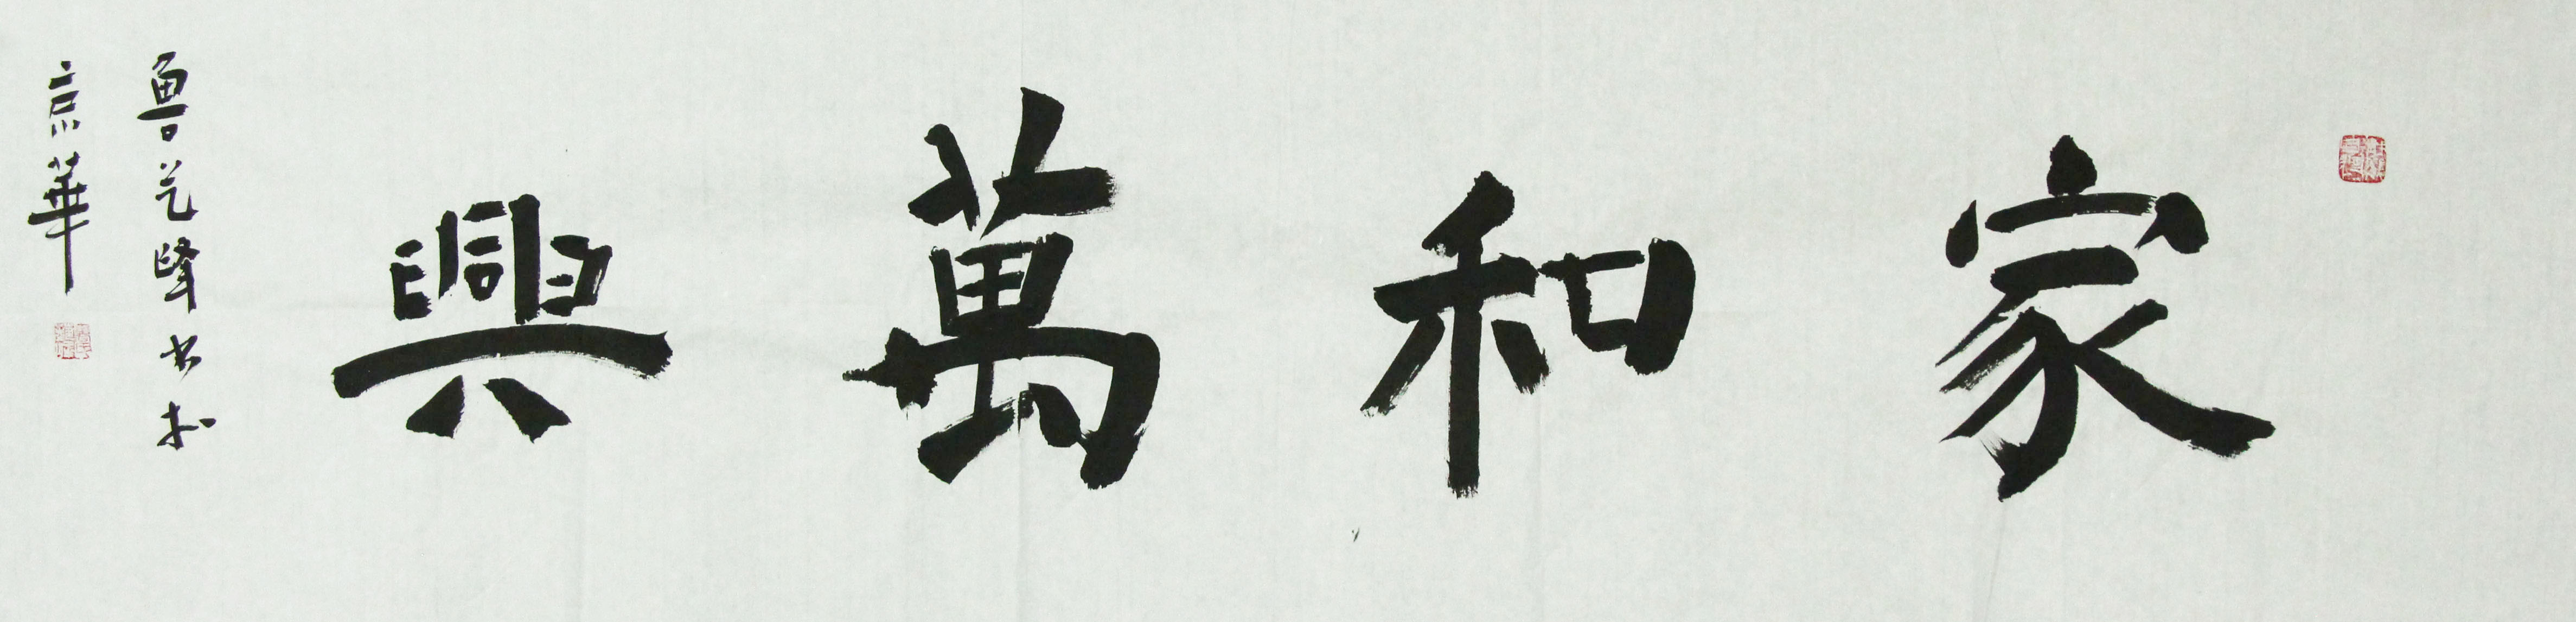 家和萬興
魯艺峰书於
京華